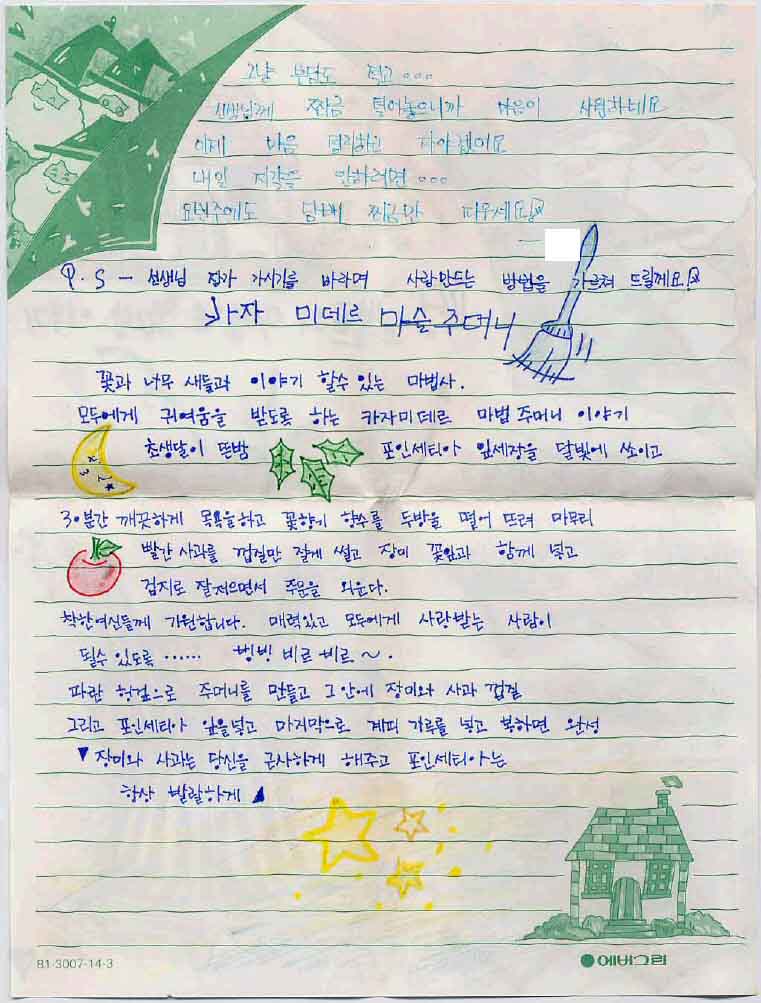 그냥 부담도 적고 ooo
선생님께 짜금 털어놓으니까 마음이 시원하네요
이제 마음 정리하고 자야겠어요
내일 지각을 안하려면 ooo
요번주에도 담배 찌금만 피우세요!
P.S - 선생님 장가 가시기를 바라며 사람만드는 방법을 가르쳐 드릴께요!
카자 미데르 마슬주머니
꽃과 나무 새들과 이야기 할수 있는 마법사.
모두에게 귀여움을 받도록 하는 카자미데르 마법 주머니 이야기
초생달이 뜬밤 포인세티아 잎세장을 달빛에 쏘이고
30분간 깨끗하게 목욕을하고 꽃향기 향수를 두방을 떨어 뜨려 마무리
빨간 사과를 껍질만 잘게 썰고 장미 꽃잎과 함께 넣고
검지로 잘저으면서 주문을 외운다.
착한여신들께 기원합니다. 매력있고 모두에게 사랑받는 사람이
될수 있도록 ...... 빙빙 비르 비르 ~ .
파란 헝겊으로 주머니를 만들고 그안에 장미와 사과 껍질
그리고 포인세티아 잎을넣고 마지막으로 계피 가루를 넣고 봉하면 완성
장미와 사과는 당신을 근사하게 해주고 포인세티아는
항상 발랄하게
81-3007-14-3
에버그린